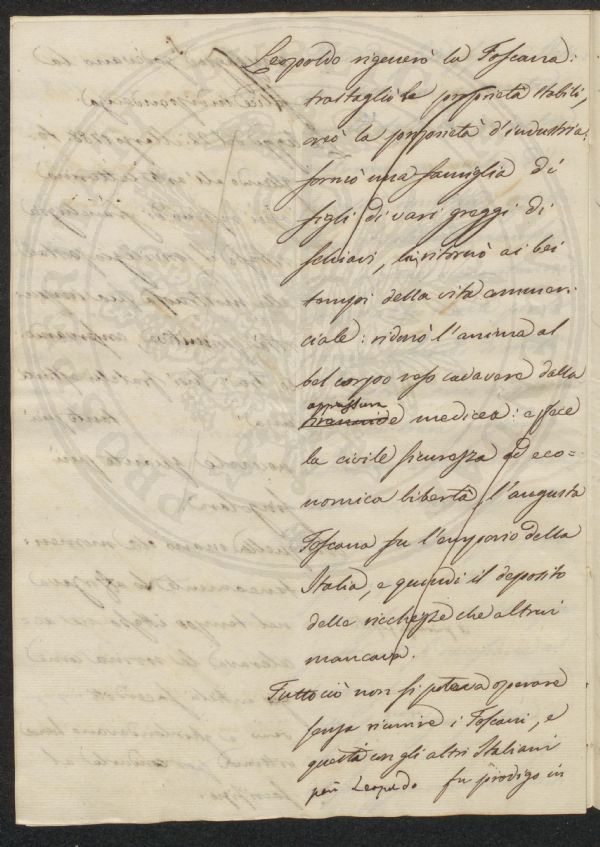 Leopoldo rigenerò la Toscana:
frastagliò le proprietà stabili,
creò la proprietà d'industria:
formò una famiglia di
figli di vari greggi di
schiavi, li ritornò ai bei
tempi della vita commer-
ciale: ridonò l'anima al
bel corpo reso cadavere dalla
oppressura
tirannide medicea: e fece
la civile sicurezza ed eco=
nomica libertà, l'augusta
Toscana fu l'emporio della
Italia, e quindi il deposito
delle ricchezze che altrui
mancava.
Tutto ciò non si poteva operare
senza riunire i Toscani, e
questi con gli altri Italiani
però Leopoldo fu prodigo in